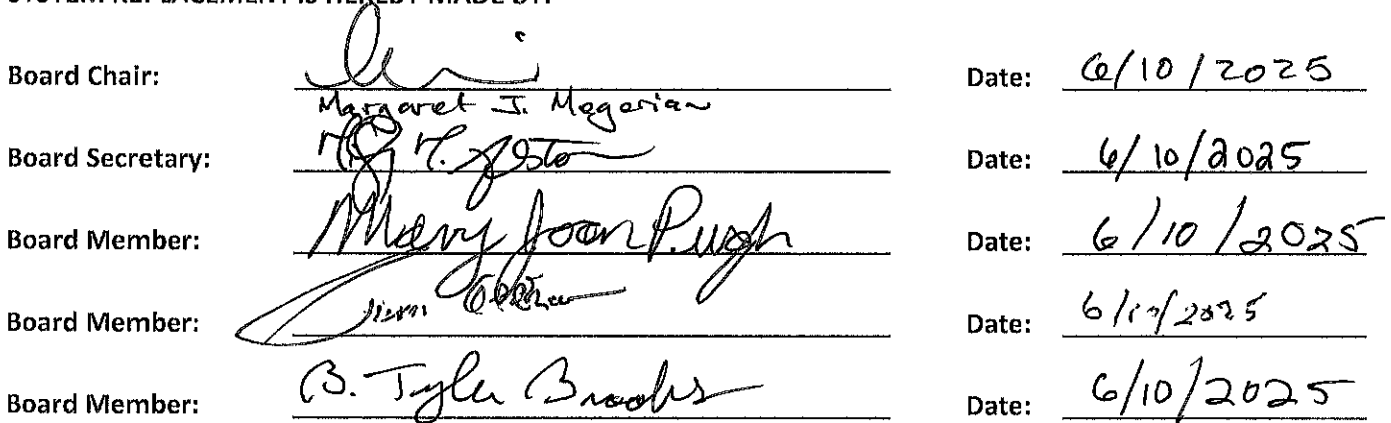 SYSTEM REPLACEMENT IS HEREBY MADE BY:
Board Chair: Date: 6/10/2025
Margaret J. Megerian
Board Secretary: Date: 6/10/2025
Board Member: Mary Joan Pugh Date: 6/10/2025
Board Member: Jim Date: 6/10/2025
Board Member: B. Tyler Brooks Date: 6/10/2025